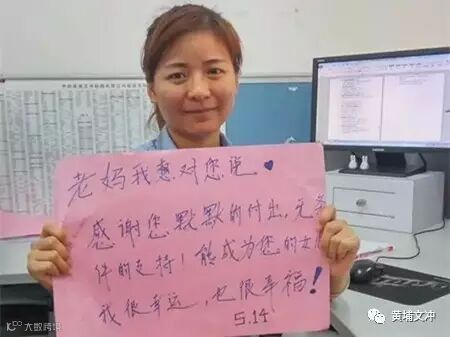 老妈我想对您说♥
感谢您默默的付出，无条
件的支持！能成为您的女儿
我很幸运，也很幸福！
5.14
大数跨境
黄埔文冲